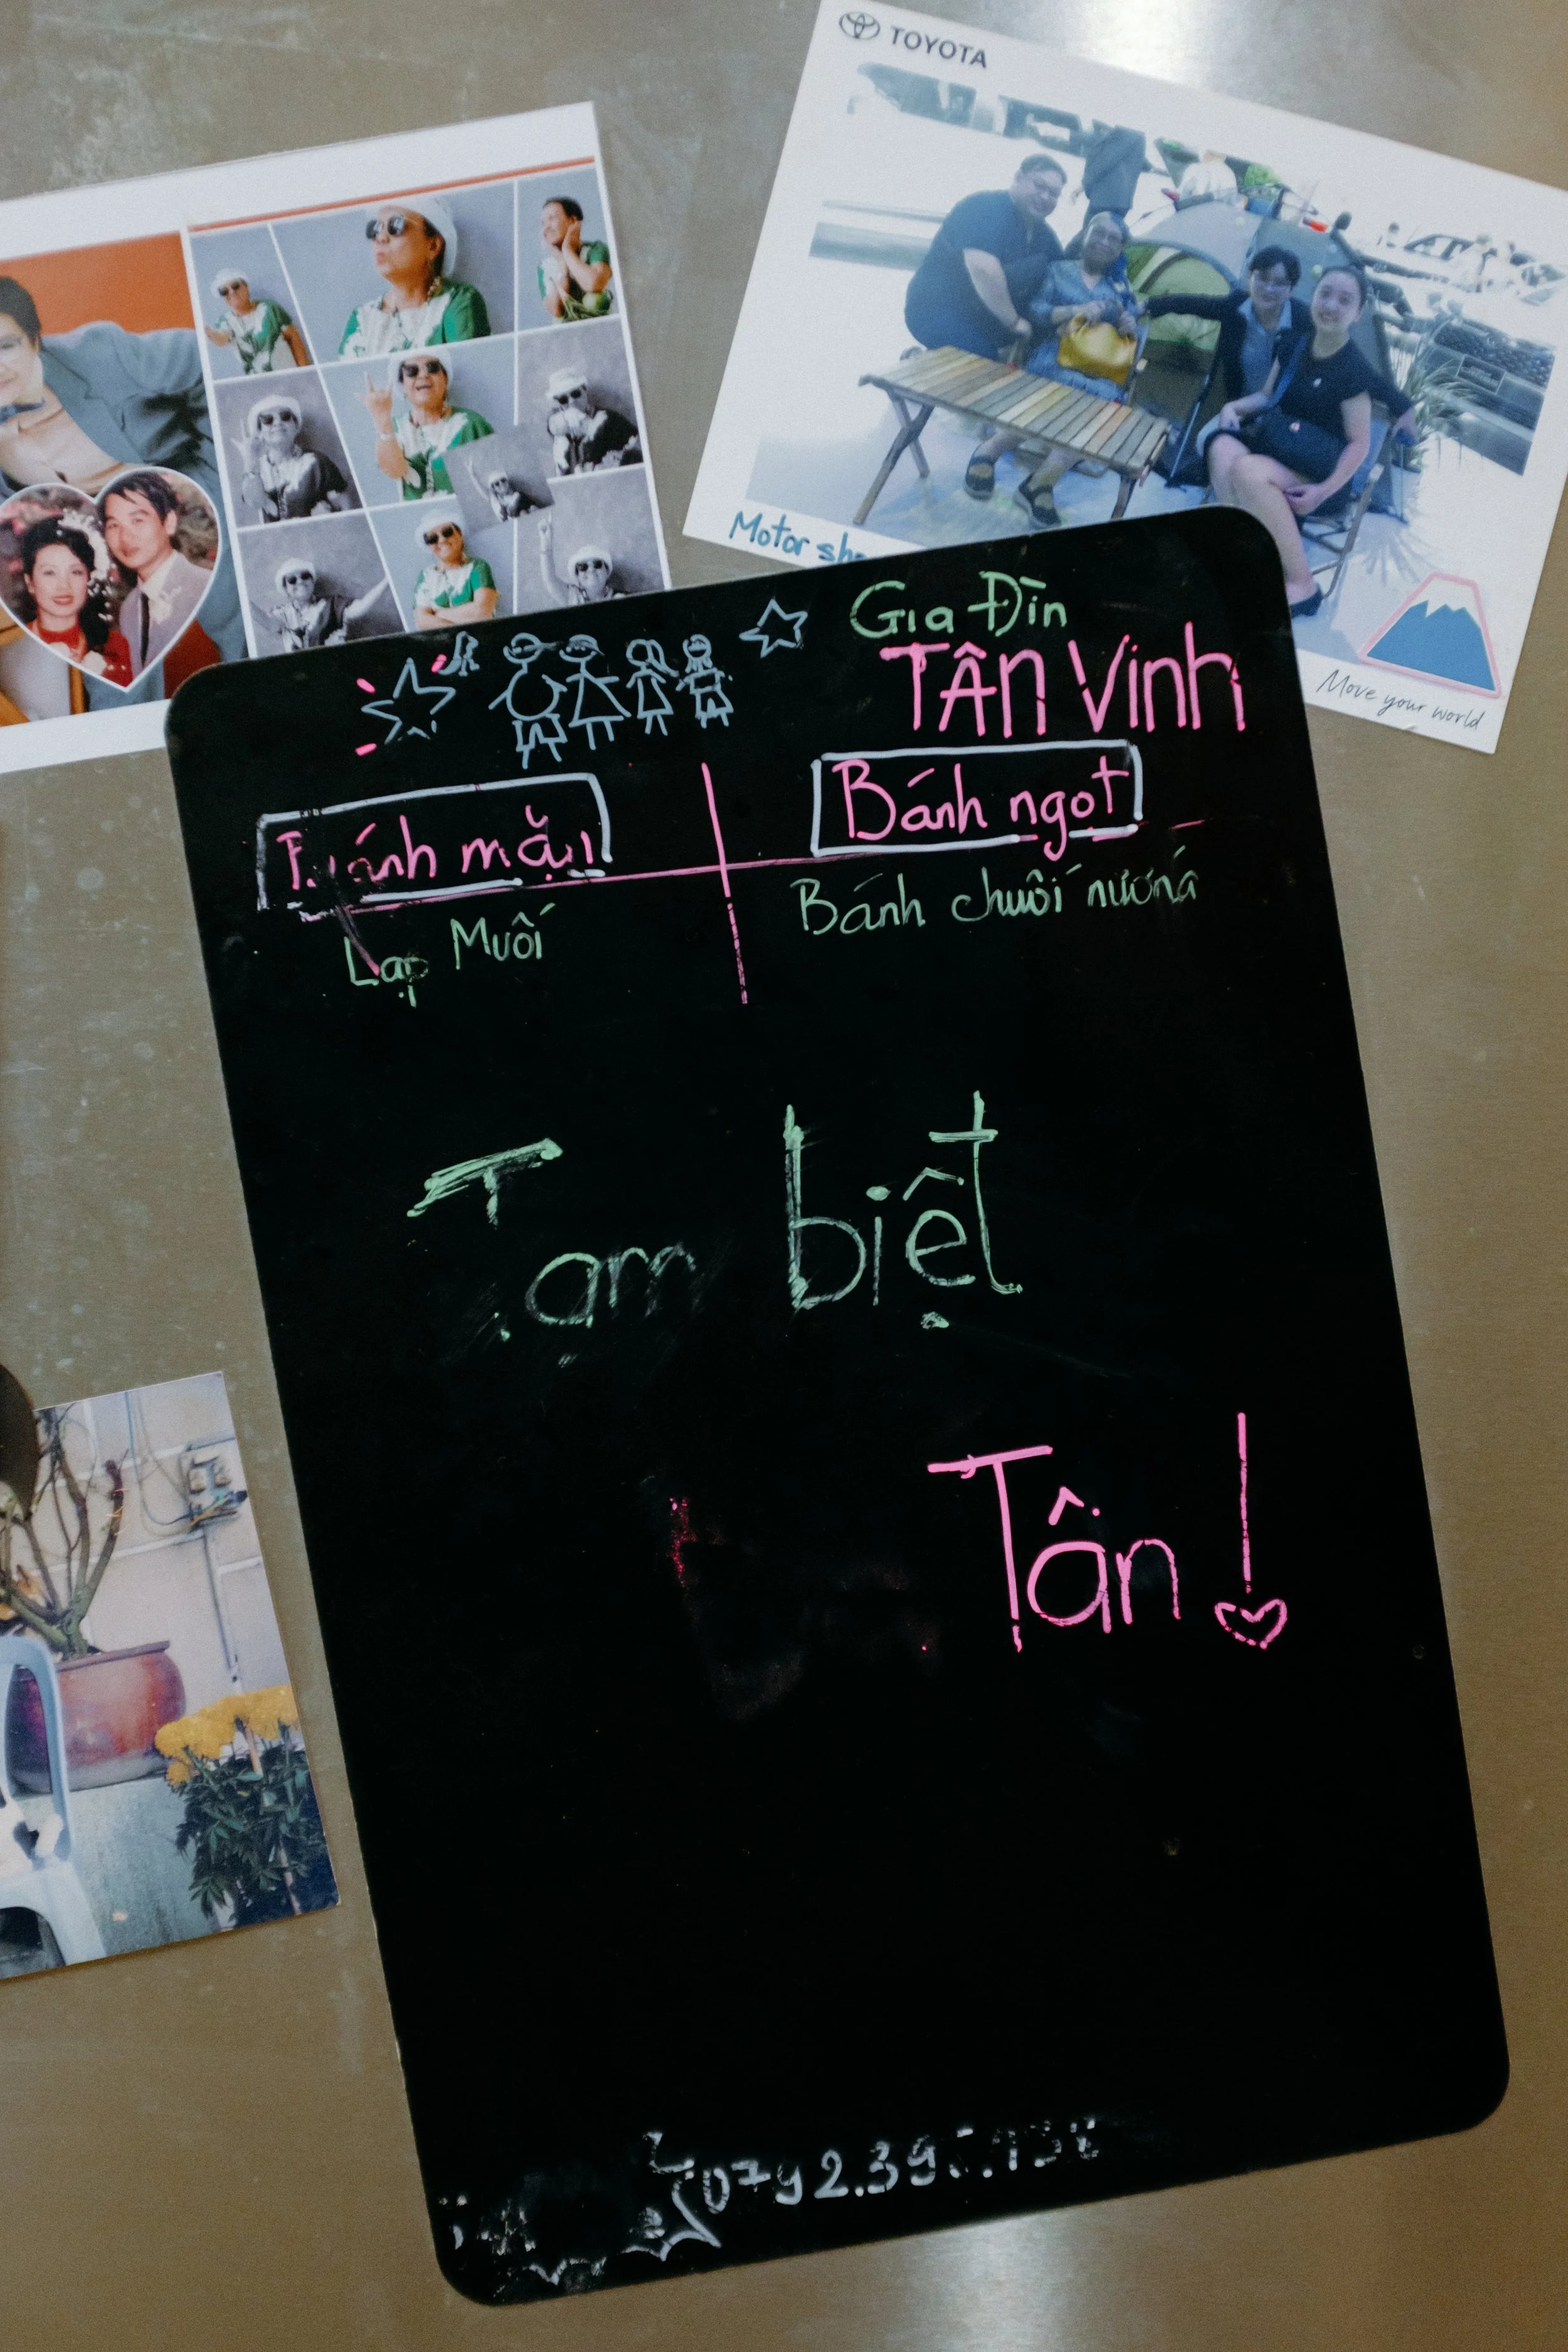 TOYOTA
Motor
Move your world
Gia Đìn
TÂN Vinh
Bánh mặn
Bánh ngọt
Lạp Muố
Bánh chuối nướng
Tạm biệt
Tân!